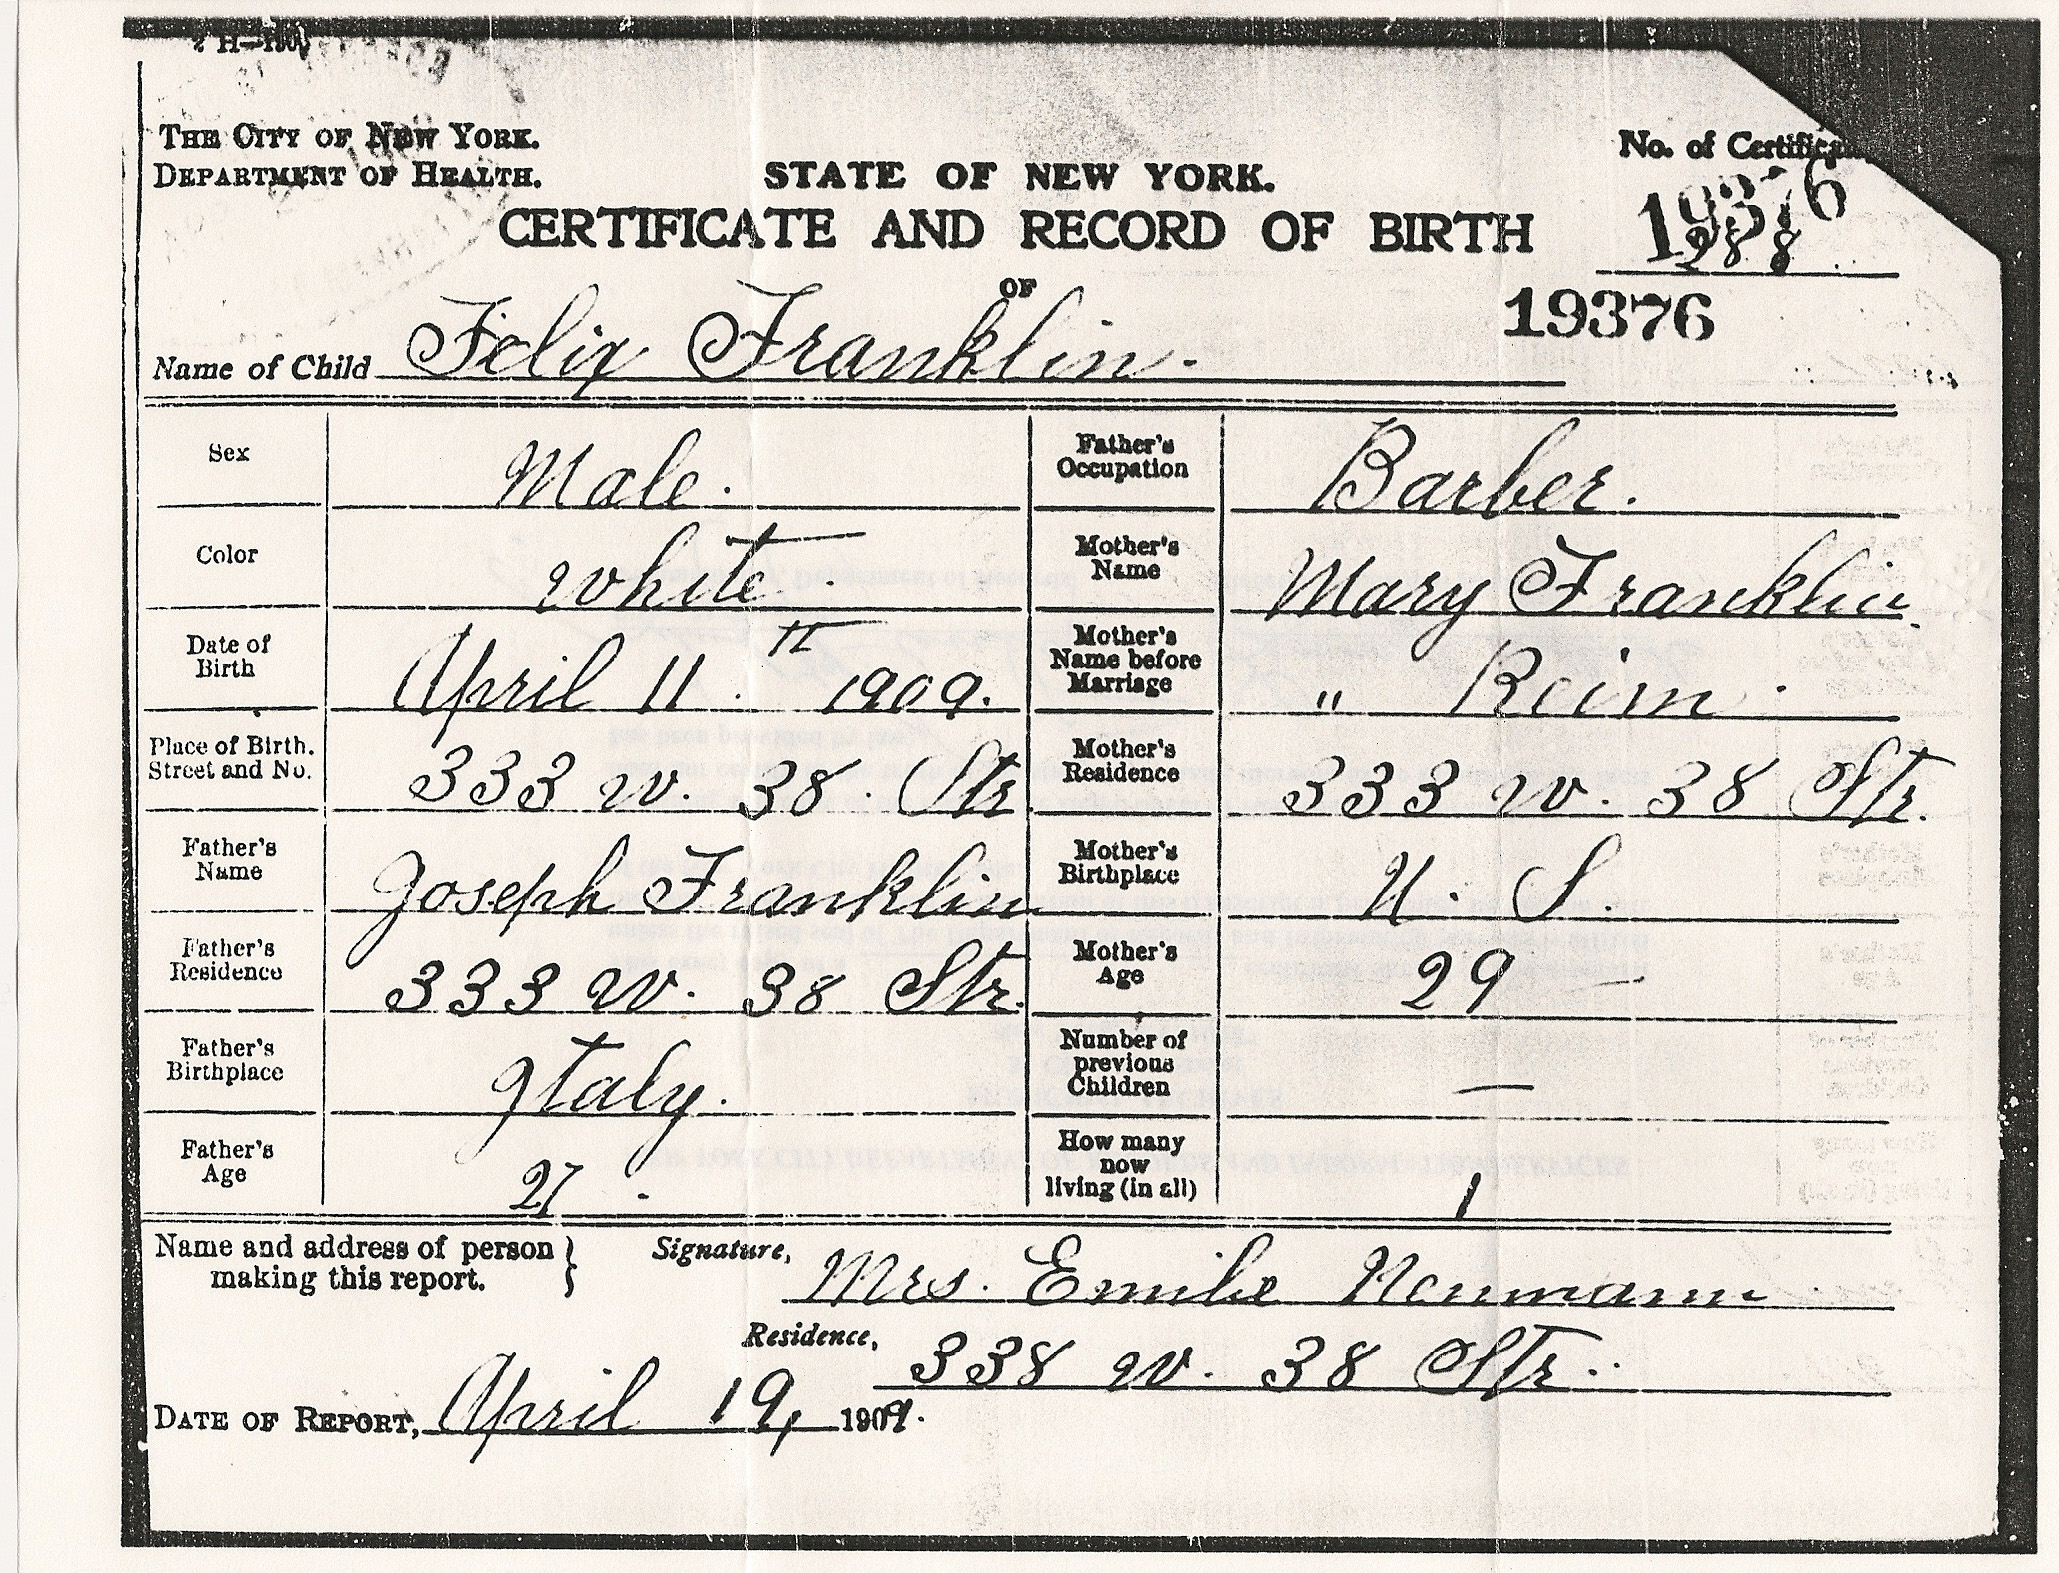 2 H-1900
THE CITY OF NEW YORK.
DEPARTMENT OF HEALTH.
STATE OF NEW YORK.
CERTIFICATE AND RECORD OF BIRTH
OF
No. of Certificate
19376
288
19376
Name of Child Felix Franklin.
Sex Male.
Color White.
Date of Birth April 11th 1909.
Place of Birth. Street and No. 333 W. 38. Str
Father's Name Joseph Franklin
Father's Residence 333 W. 38 Str.
Father's Birthplace Italy.
Father's Age 27.
Father's Occupation Barber.
Mother's Name Mary Franklin.
Mother's Name before Marriage " Reim.
Mother's Residence 333 W. 38 Str.
Mother's Birthplace U. S.
Mother's Age 29
Number of previous Children —
How many now living (in all) 1
Name and address of person
making this report.
Signature, Mrs. Emilie Neumann
Residence, 338 W. 38 Str.
DATE OF REPORT, April 19, 1909.